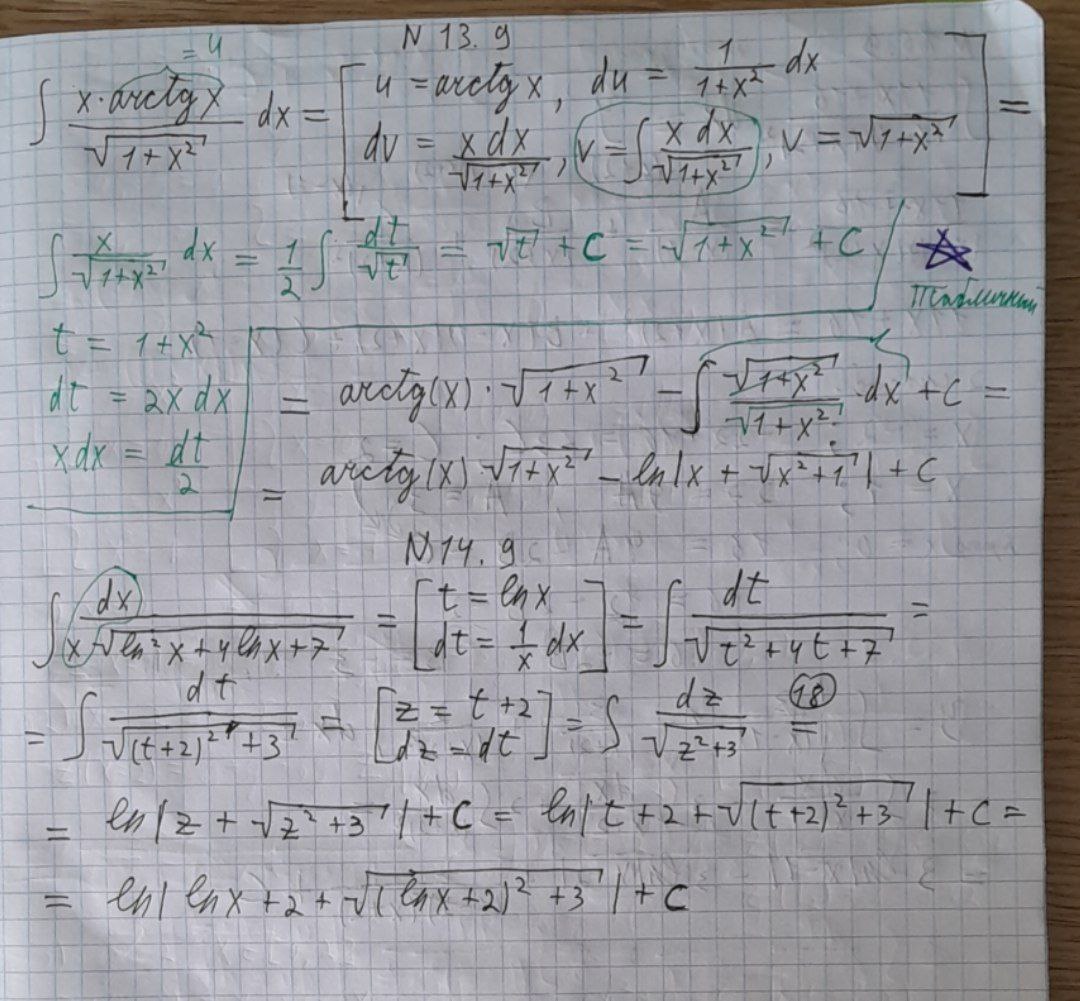 N 13. 9
= u
∫ x·arctg x / √(1+x²) dx = [ u = arctg x, du = 1/(1+x²) dx
dv = x dx / √(1+x²), v = ∫ x dx / √(1+x²), v = √(1+x²) ] =
∫ x/√(1+x²) dx = 1/2 ∫ dt/√t = √t + C = √(1+x²) + C
Табличный
t = 1+x²
dt = 2x dx
x dx = dt/2
= arctg(x) · √(1+x²) − ∫ √(1+x²)/√(1+x²)² · dx + C =
= arctg(x) √(1+x²) − ln|x + √(x²+1)| + C
N 14. 9
∫ dx / x√(ln²x+4lnx+7) = [ t = ln x
dt = 1/x dx ] = ∫ dt / √(t²+4t+7) =
= ∫ dt / √((t+2)²+3) = [ z = t+2
dz = dt ] = ∫ dz / √(z²+3) = (18)
= ln|z + √(z²+3)| + C = ln|t+2+√((t+2)²+3)| + C =
= ln|lnx+2+√((lnx+2)²+3)| + C